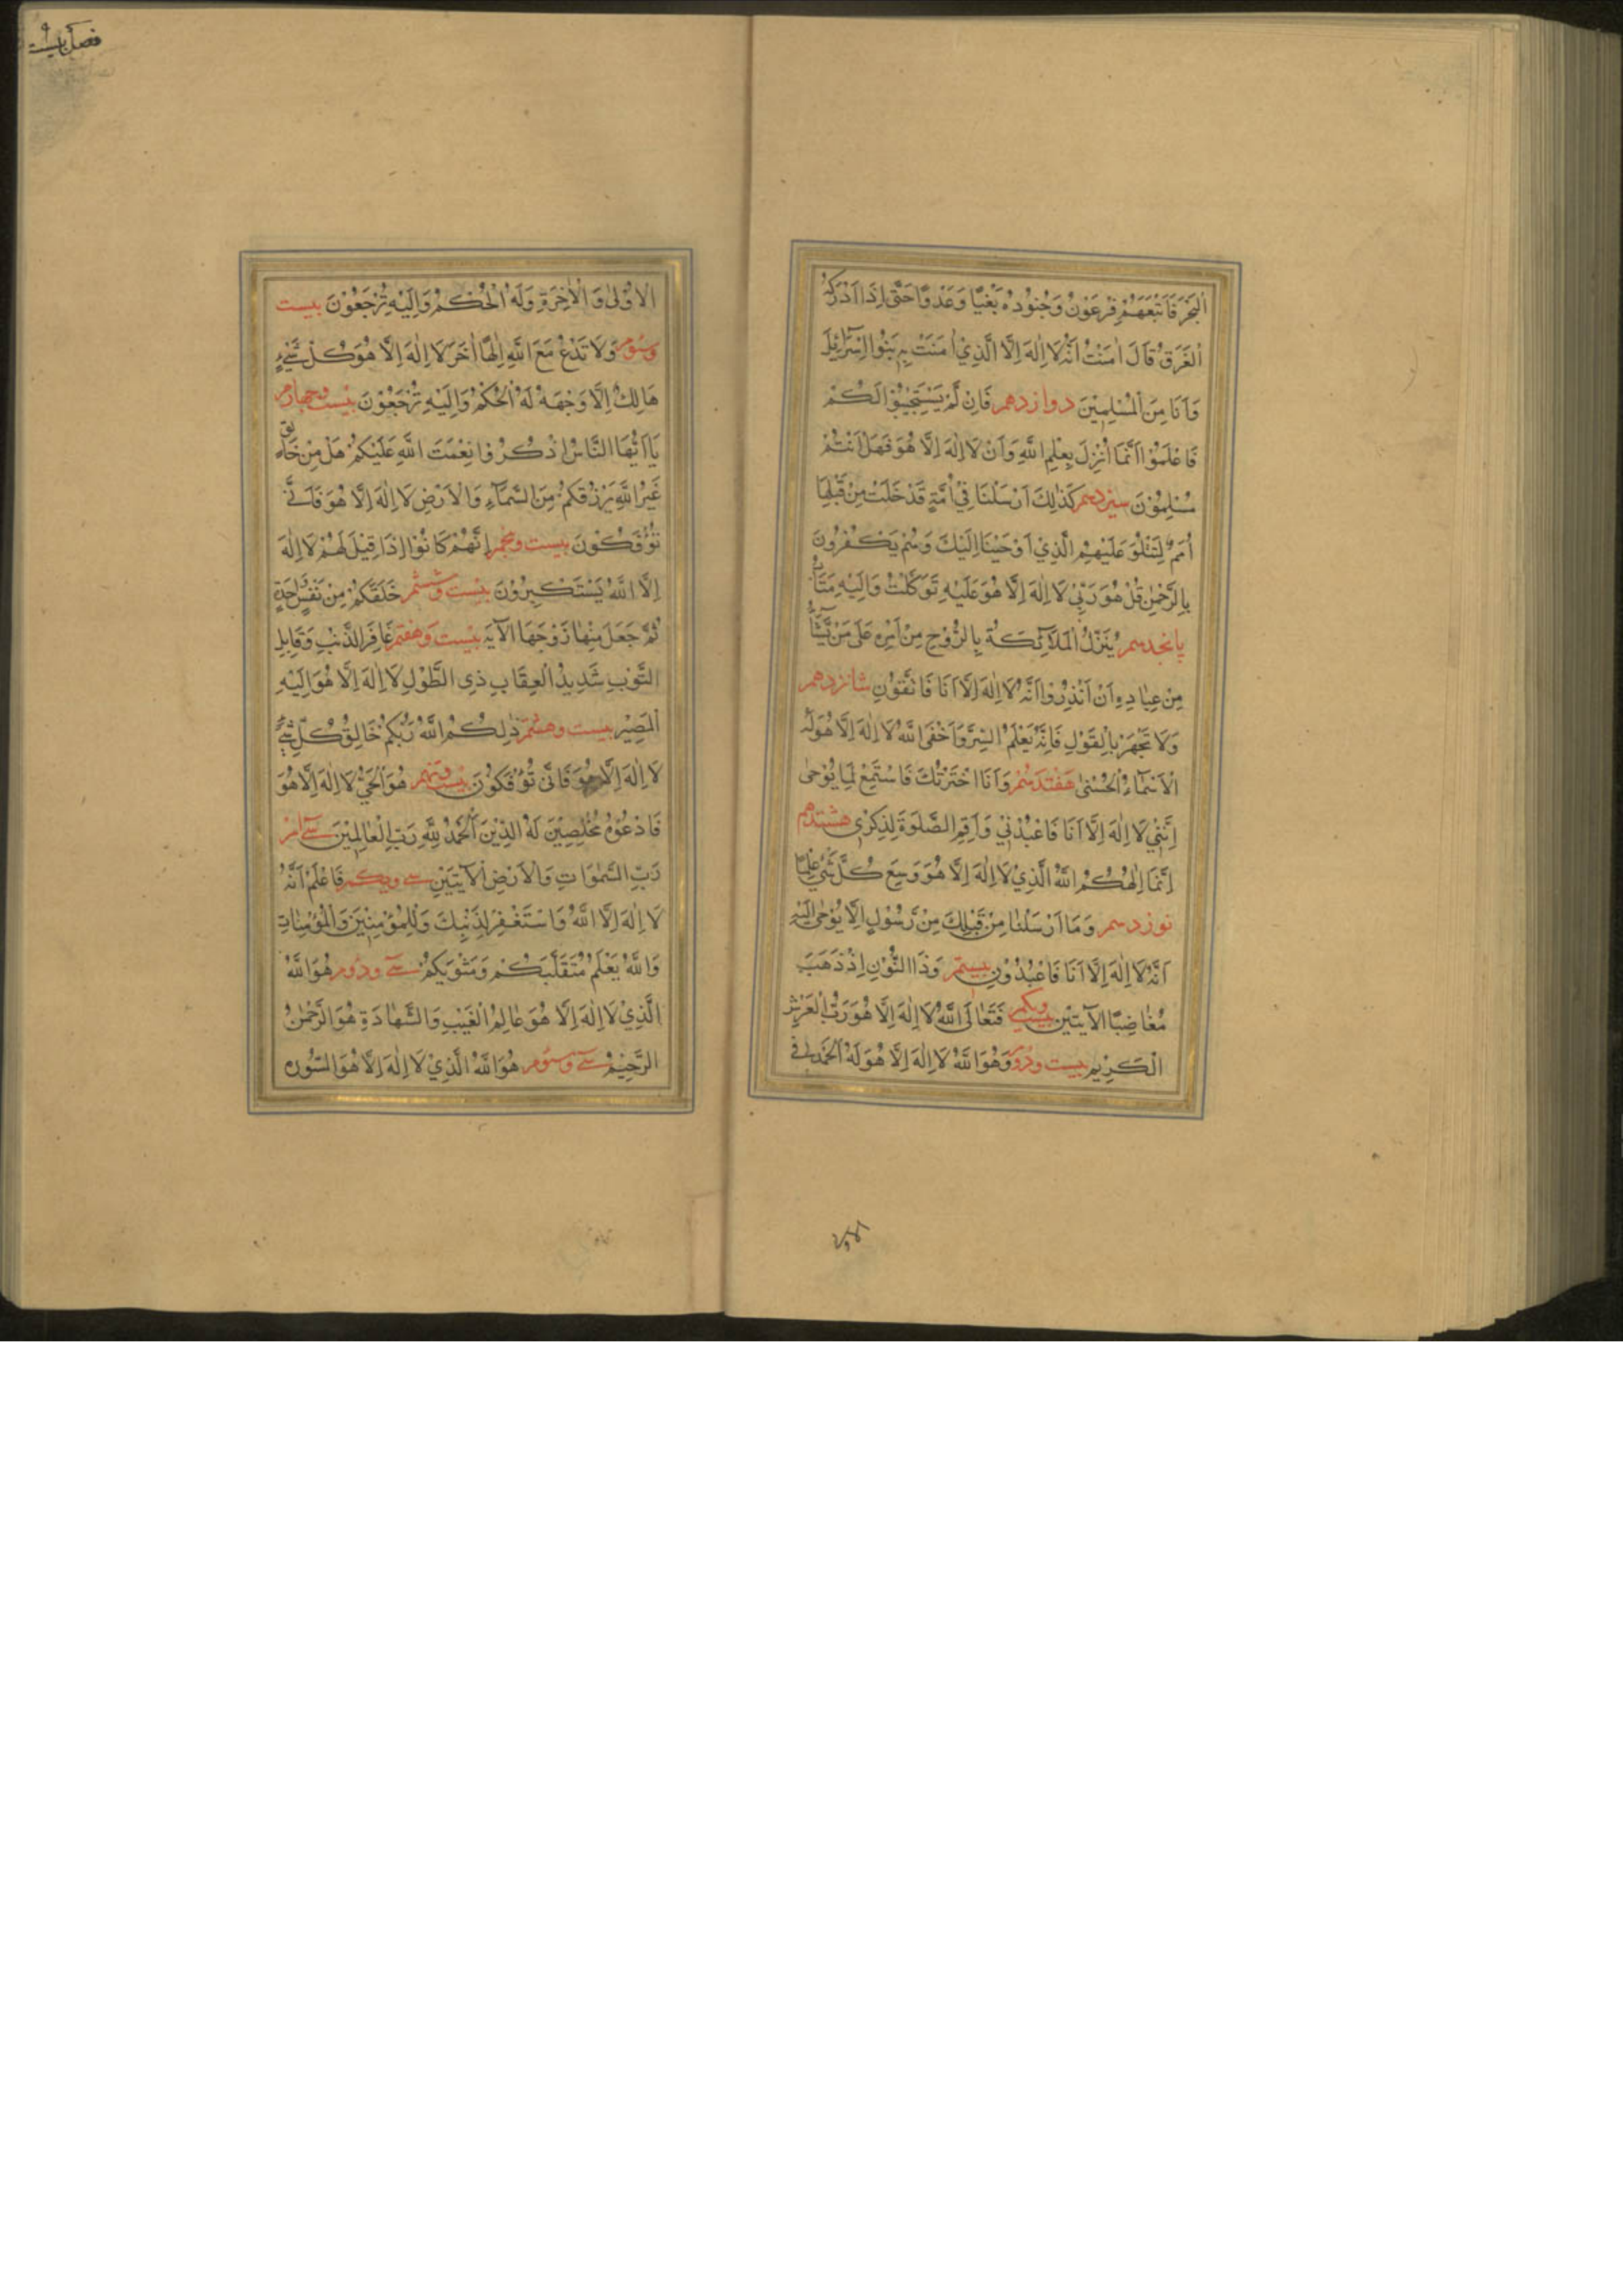 الْبَحْرَ فَاَتْبَعَهُمْ فِرْعَوْنُ وَجُنُوْدُهُ بَغْيًا وَعَدْوًا حَتّٰى اِذَا اَدْرَكَهُ
الْغَرَقُ قَالَ اٰمَنْتُ اَنَّهُ لَا اِلٰهَ اِلَّا الَّذِيْ اٰمَنَتْ بِهِ بَنُوْا اِسْرَآئِيْلَ
وَاَنَا مِنَ الْمُسْلِمِيْنَ دوازدهم فَاِنْ لَمْ يَسْتَجِيْبُوْا لَكُمْ
فَاعْلَمُوْا اَنَّمَا اُنْزِلَ بِعِلْمِ اللّٰهِ وَاَنْ لَا اِلٰهَ اِلَّا هُوَ فَهَلْ اَنْتُمْ
مُسْلِمُوْنَ سيزدهم كَذٰلِكَ اَرْسَلْنَا فِيْ اُمَّةٍ قَدْ خَلَتْ مِنْ قَبْلِهَا
اُمَمٌ لِتَتْلُوَ عَلَيْهِمُ الَّذِيْ اَوْحَيْنَا اِلَيْكَ وَهُمْ يَكْفُرُونَ
بِالرَّحْمٰنِ قُلْ هُوَ رَبِّيْ لَا اِلٰهَ اِلَّا هُوَ عَلَيْهِ تَوَكَّلْتُ وَاِلَيْهِ مَتَابِ
پانجدهم يُنَزِّلُ الْمَلَآئِكَةَ بِالرُّوْحِ مِنْ اَمْرِهِ عَلٰى مَنْ يَّشَآءُ
مِنْ عِبَادِهِ اَنْ اَنْذِرُوْا اَنَّهُ لَا اِلٰهَ اِلَّا اَنَا فَاتَّقُوْنِ شانزدهم
وَلَا تَجْهَرْ بِالْقَوْلِ فَاِنَّهُ يَعْلَمُ السِّرَّ وَاَخْفٰى اللّٰهُ لَا اِلٰهَ اِلَّا هُوَ لَهُ
الْاَسْمَآءُ الْحُسْنٰى هفتدهم وَاَنَا اخْتَرْتُكَ فَاسْتَمِعْ لِمَا يُوْحٰى
اِنَّنِيْ لَا اِلٰهَ اِلَّا اَنَا فَاعْبُدْنِيْ وَاَقِمِ الصَّلٰوةَ لِذِكْرِيْ هشتدهم
اِنَّمَا اِلٰهُكُمُ اللّٰهُ الَّذِيْ لَا اِلٰهَ اِلَّا هُوَ وَسِعَ كُلَّ شَيْءٍ عِلْمًا
نوزدهم وَمَا اَرْسَلْنَا مِنْ قَبْلِكَ مِنْ رَّسُوْلٍ اِلَّا يُوْحٰى اِلَيْهِ
اَنَّهُ لَا اِلٰهَ اِلَّا اَنَا فَاعْبُدُوْنِ بيستم وَذَا النُّوْنِ اِذْ ذَهَبَ
مُغَاضِبًا الاٰيتين بيست ويكم فَتَعَالَى اللّٰهُ لَا اِلٰهَ اِلَّا هُوَ رَبُّ الْعَرْشِ
الْكَرِيْمِ بيست ودوم وَهُوَ اللّٰهُ لَا اِلٰهَ اِلَّا هُوَ لَهُ الْحَمْدُ فِي
الاولى
فصل بيست
الْاُوْلٰى وَالْاٰخِرَةِ وَلَهُ الْحُكْمُ وَاِلَيْهِ تُرْجَعُوْنَ بيست
وسوم وَلَا تَدْعُ مَعَ اللّٰهِ اِلٰهًا اٰخَرَ لَا اِلٰهَ اِلَّا هُوَ كُلُّ شَيْءٍ
هَالِكٌ اِلَّا وَجْهَهُ لَهُ الْحُكْمُ وَاِلَيْهِ تُرْجَعُوْنَ بيست وچهارم
يَا اَيُّهَا النَّاسُ اذْكُرُوْا نِعْمَتَ اللّٰهِ عَلَيْكُمْ هَلْ مِنْ خَالِقٍ
غَيْرُ اللّٰهِ يَرْزُقُكُمْ مِنَ السَّمَآءِ وَالْاَرْضِ لَا اِلٰهَ اِلَّا هُوَ فَاَنّٰى
تُؤْفَكُوْنَ بيست وپنجم اِنَّهُمْ كَانُوْا اِذَا قِيْلَ لَهُمْ لَا اِلٰهَ
اِلَّا اللّٰهُ يَسْتَكْبِرُوْنَ بيست وششم خَلَقَكُمْ مِنْ نَفْسٍ وَّاحِدَةٍ
ثُمَّ جَعَلَ مِنْهَا زَوْجَهَا الاٰيه بيست وهفتم غَافِرِ الذَّنْبِ وَقَابِلِ
التَّوْبِ شَدِيْدِ الْعِقَابِ ذِي الطَّوْلِ لَا اِلٰهَ اِلَّا هُوَ اِلَيْهِ
الْمَصِيْرُ بيست وهشتم ذٰلِكُمُ اللّٰهُ رَبُّكُمْ خَالِقُ كُلِّ شَيْءٍ
لَا اِلٰهَ اِلَّا هُوَ فَاَنّٰى تُؤْفَكُوْنَ بيست ونهم هُوَ الْحَيُّ لَا اِلٰهَ اِلَّا هُوَ
فَادْعُوْهُ مُخْلِصِيْنَ لَهُ الدِّيْنَ اَلْحَمْدُ لِلّٰهِ رَبِّ الْعٰالَمِيْنَ سي ام
رَبِّ السَّمٰوَاتِ وَالْاَرْضِ الاٰيتين سي ويكم فَاعْلَمْ اَنَّهُ
لَا اِلٰهَ اِلَّا اللّٰهُ وَاسْتَغْفِرْ لِذَنْبِكَ وَلِلْمُؤْمِنِيْنَ وَالْمُؤْمِنَاتِ
وَاللّٰهُ يَعْلَمُ مُتَقَلَّبَكُمْ وَمَثْوٰيكُمْ سي ودوم هُوَ اللّٰهُ
الَّذِيْ لَا اِلٰهَ اِلَّا هُوَ عَالِمُ الْغَيْبِ وَالشَّهَادَةِ هُوَ الرَّحْمٰنُ
الرَّحِيْمُ سي وسوم هُوَ اللّٰهُ الَّذِيْ لَا اِلٰهَ اِلَّا هُوَ السُّوره